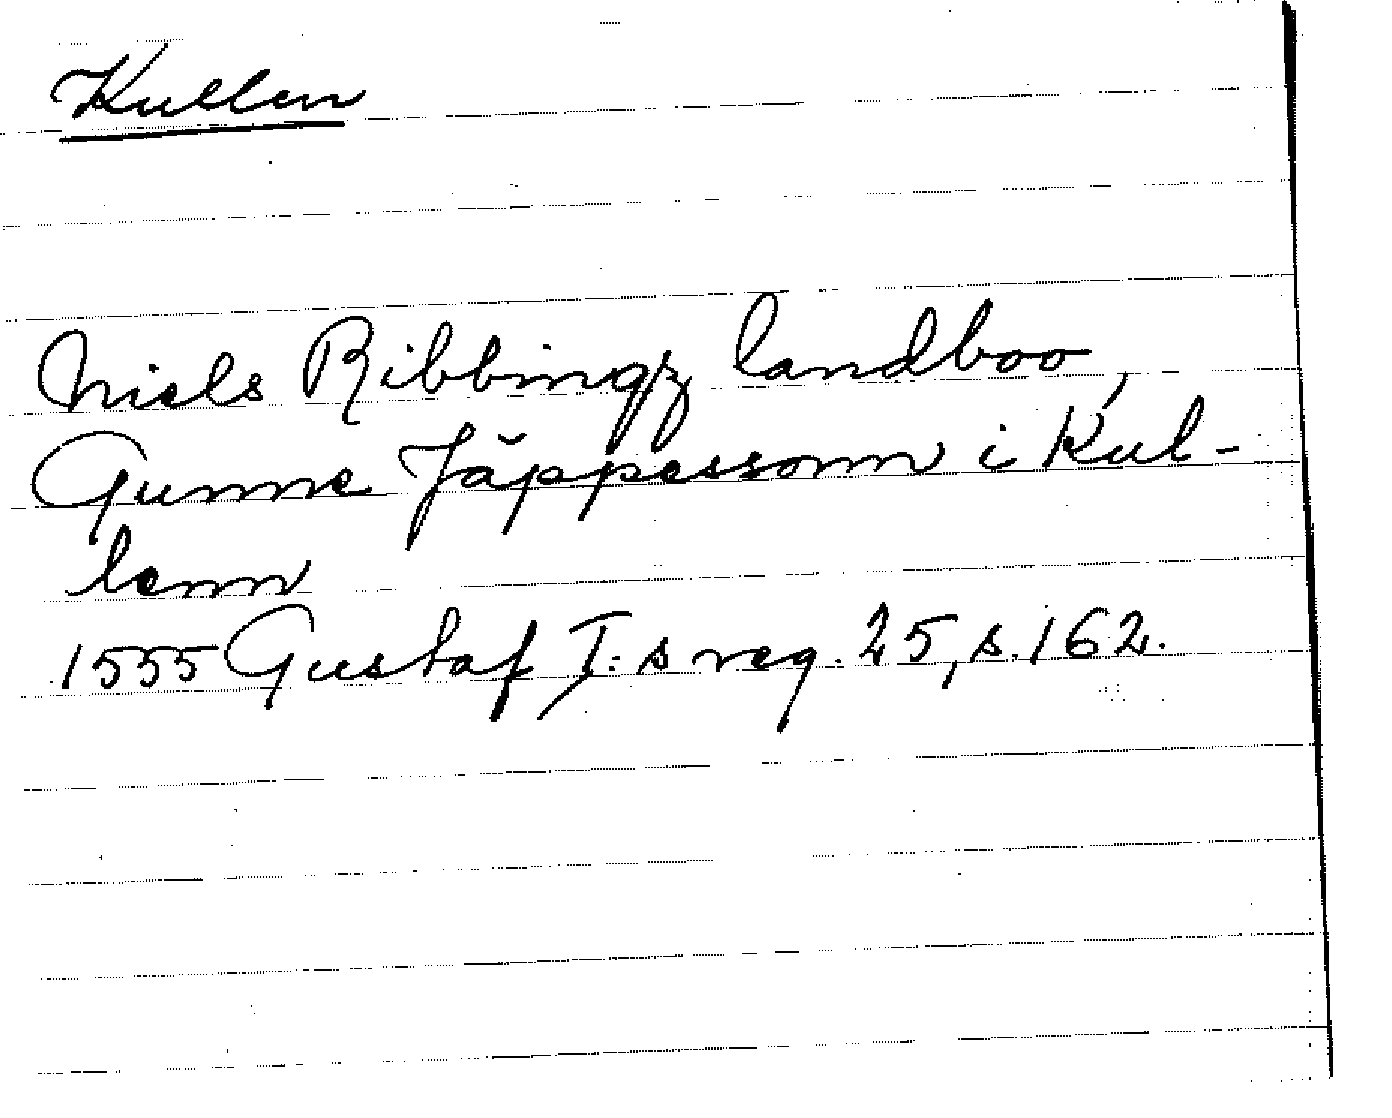 Kullen
Niels Ribbingz landboo,
Gunne Jäppessonn i Kul-
lenn
1555 Gustaf I:s reg. 25, s. 162.